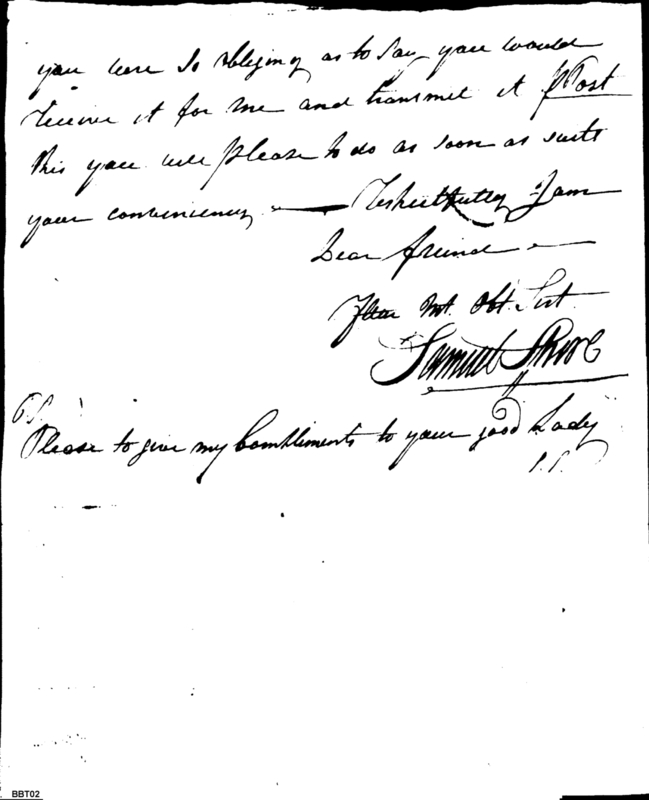 you were so obliging as to say you would
receive it for me and transmit it Post
this you will please to do as soon as suits
your conveniency — Respectfully I am
Dear friend —
Your Mt. Obt. Servt.
Samuel
P.S.
Please to give my Compliments to your good Lady
BBT02